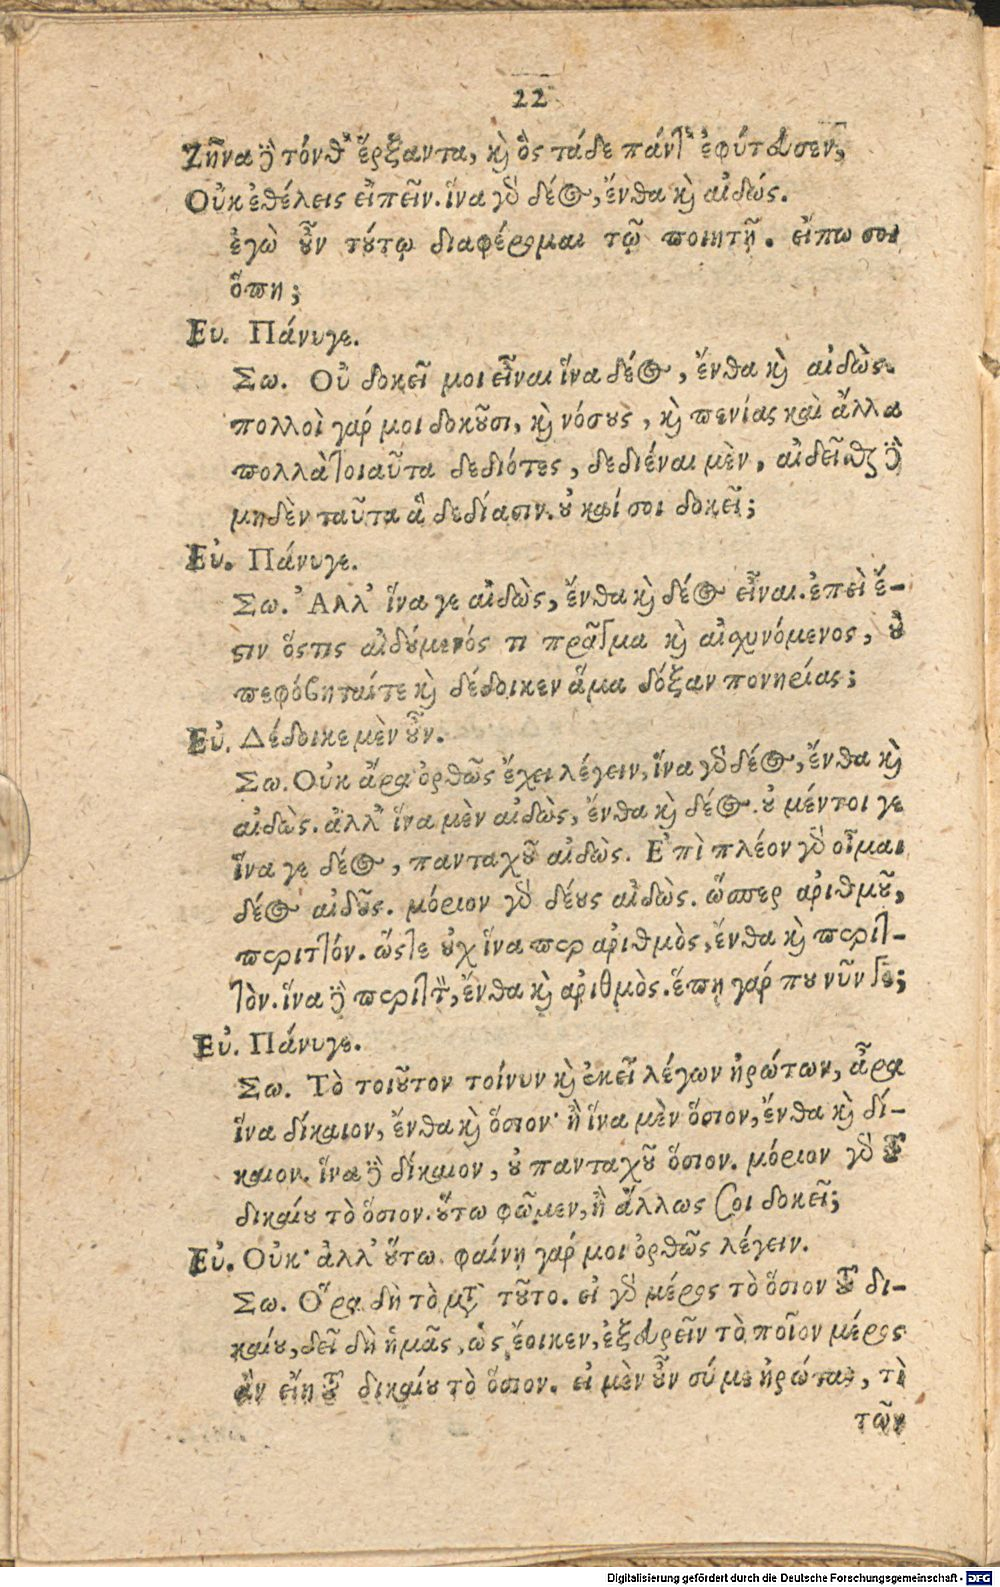 22
Ζῆνα δὲ τόνθ' ἕρξαντα, καὶ ὃς τάδε πάντ' ἐφύτευσεν,
Οὐκ ἐθέλεις εἰπεῖν. ἵνα γὰρ δέος, ἔνθα καὶ αἰδώς.
ἐγὼ οὖν τούτῳ διαφέρομαι τῷ ποιητῇ. εἴπω σοι
ὅπη;
Ευ. Πάνυγε.
Σω. Οὐ δοκεῖ μοι εἶναι ἵνα δέος, ἔνθα καὶ αἰδὼς.
πολλοὶ γάρ μοι δοκοῦσι, καὶ νόσους, καὶ πενίας καὶ ἄλλα
πολλὰ τοιαῦτα δεδιότες, δεδιέναι μὲν, αἰδεῖσθαι δὲ
μηδὲν ταῦτα ἃ δεδίασιν. οὐ καί σοι δοκεῖ;
Εὐ. Πάνυγε.
Σω. Ἀλλ' ἵνα γε αἰδὼς, ἔνθα καὶ δέος εἶναι. ἐπεὶ ἔ-
στιν ὅστις αἰδούμενός τι πρᾶγμα καὶ αἰσχυνόμενος, οὐ
πεφόβηταίτε καὶ δέδοικεν ἅμα δόξαν πονηρίας;
Εὐ. Δέδοικε μὲν οὖν.
Σω. Οὐκ ἄρα ὀρθῶς ἔχει λέγειν, ἵνα γὰρ δέος, ἔνθα καὶ
αἰδὼς. ἀλλ' ἵνα μὲν αἰδὼς, ἔνθα καὶ δέος. οὐ μέντοι γε
ἵνα γε δέος, πανταχοῦ αἰδὼς. Ἐπὶ πλέον γὰρ οἶμαι
δέος αἰδοῦς. μόριον γὰρ δέους αἰδὼς. ὥσπερ ἀριθμοῦ,
περιττόν. ὥστε οὐχ ἵνα περ ἀριθμὸς, ἔνθα καὶ περιτ-
τὸν. ἵνα δὲ περιττὸν, ἔνθα καὶ ἀριθμὸς. ἕπῃ γάρ που νῦν γε;
Εὐ. Πάνυγε.
Σω. Τὸ τοιοῦτον τοίνυν καὶ ἐκεῖ λέγων ἠρώτων, ἆρα
ἵνα δίκαιον, ἔνθα καὶ ὅσιον· ἢ ἵνα μὲν ὅσιον, ἔνθα καὶ δί-
καιον. ἵνα δὲ δίκαιον, οὐ πανταχοῦ ὅσιον. μόριον γὰρ τοῦ
δικαίου τὸ ὅσιον. οὕτω φῶμεν, ἢ ἄλλως σοι δοκεῖ;
Εὐ. Οὐκ· ἀλλ' οὕτω. φαίνῃ γάρ μοι ὀρθῶς λέγειν.
Σω. Ὅρα δὴ τὸ μετὰ τοῦτο. εἰ γὰρ μέρος τὸ ὅσιον τοῦ δι-
καίου, δεῖ δὴ ἡμᾶς, ὡς ἔοικεν, ἐξευρεῖν τὸ ποῖον μέρος
ἂν εἴη τοῦ δικαίου τὸ ὅσιον. εἰ μὲν οὖν σύ με ἠρώτας, τὶ
τῶν
Digitalisierung gefördert durch die Deutsche Forschungsgemeinschaft - DFG